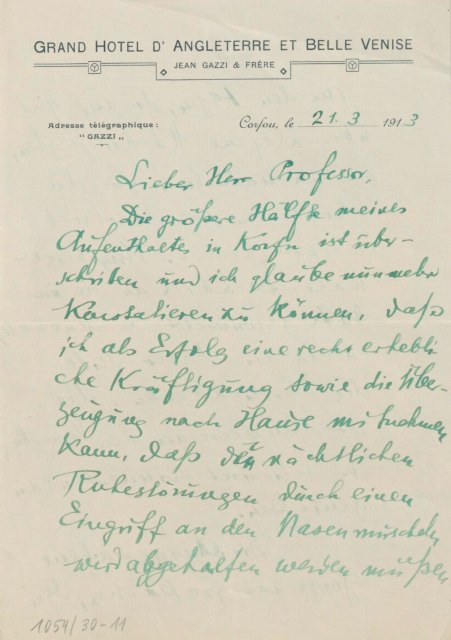 GRAND HOTEL D' ANGLETERRE ET BELLE VENISE
JEAN GAZZI & FRÈRE
Adresse télégraphique:
"GAZZI"
Corfou, le 21. 3 1913
Lieber Herr Professor,
Die größere Hälfte meines
Aufenthaltes in Korfu ist über-
schritten und ich glaube nunmehr
konstatieren zu können, daß
ich als Erfolg eine recht erhebli-
che Kräftigung sowie die Über-
zeugung nach Hause mitnehmen
kann, daß den nächtlichen
Ruhestörungen durch einen
Eingriff an den Nasenmuscheln
wird abgeholfen werden müßen
1054/30-11